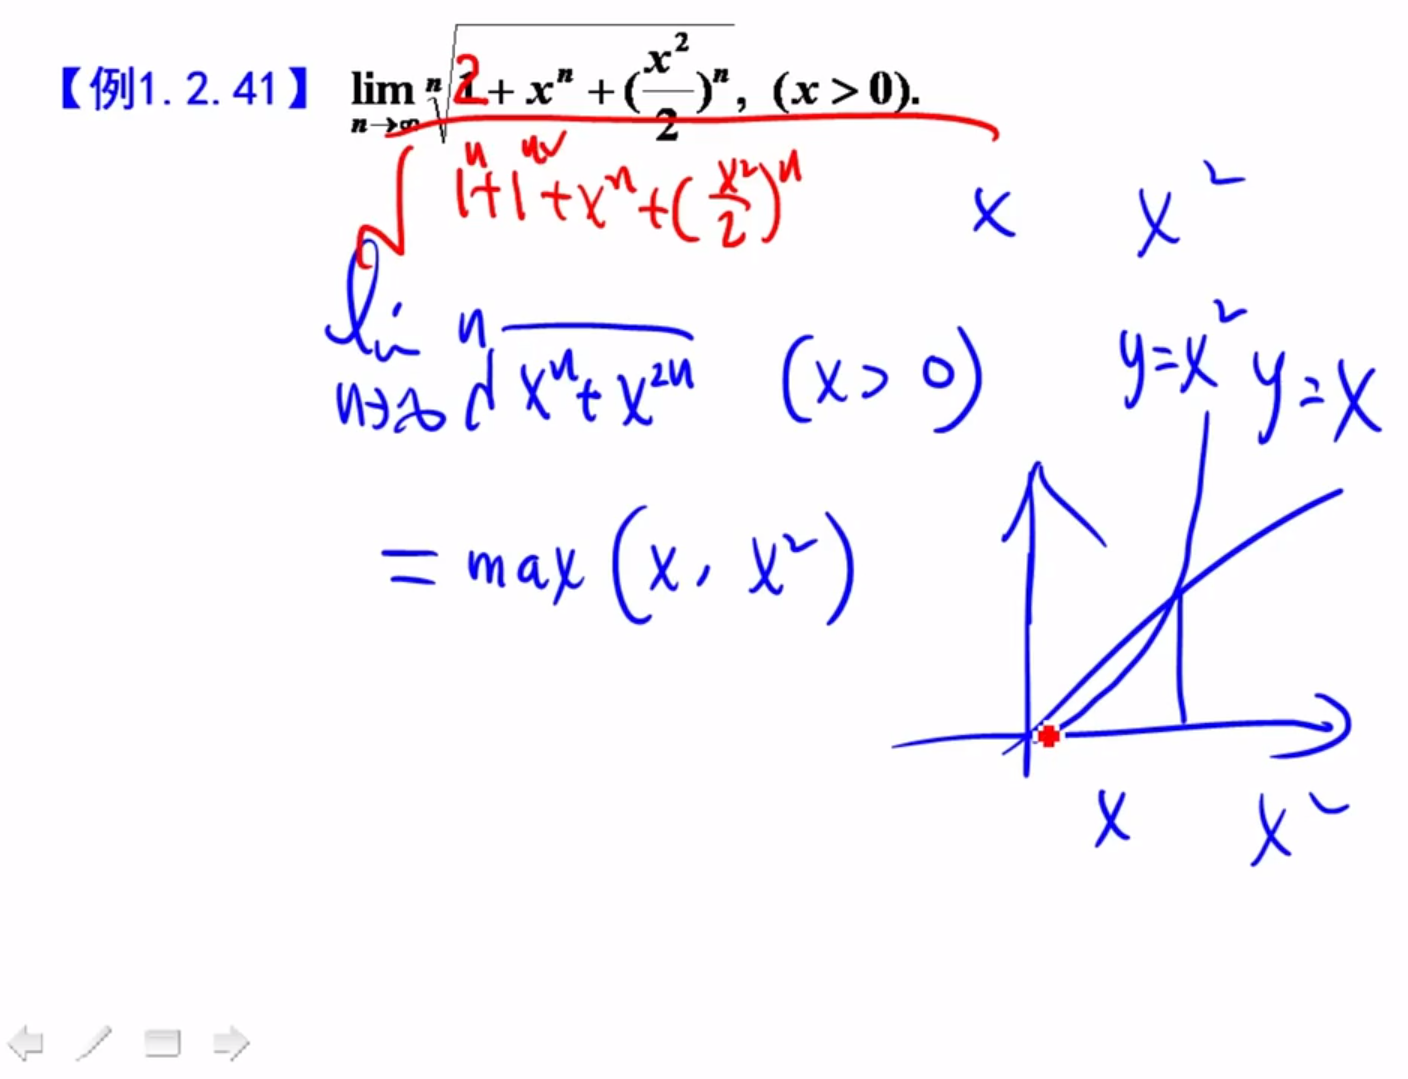 【例1.2.41】 lim n→∞ ⁿ√(2 + xⁿ + (x²/2)ⁿ), (x > 0).
√(1ⁿ + 1ⁿ + xⁿ + (x²/2)ⁿ)
x x²
lim n→∞ ⁿ√(xⁿ + x²ⁿ) (x > 0)
y = x² y = x
= max (x, x²)
x x²